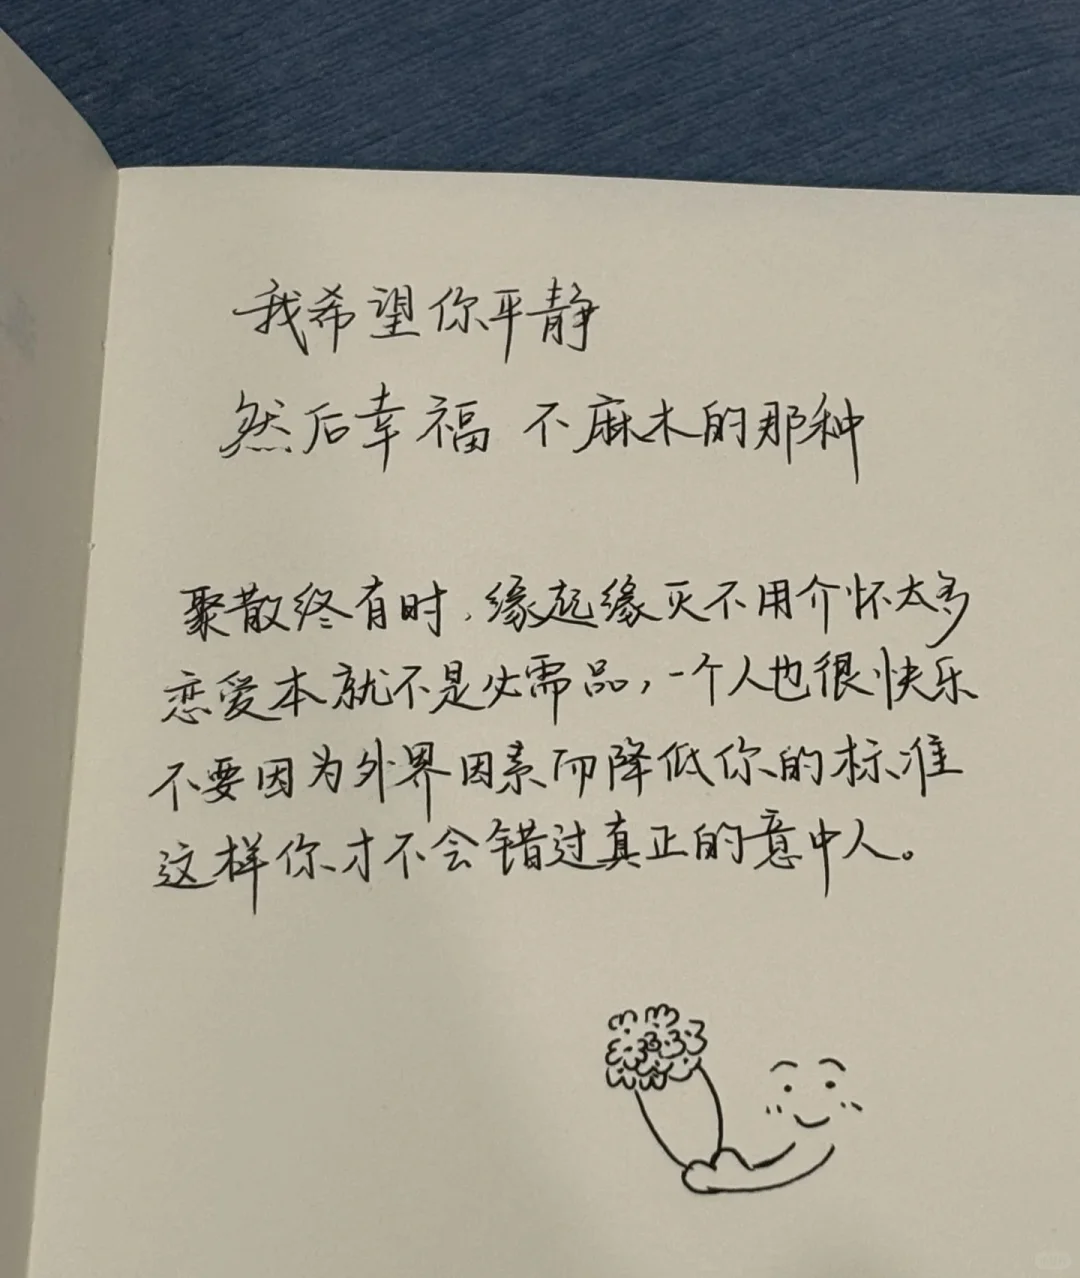 我希望你平静
然后幸福 不麻木的那种
聚散终有时，缘起缘灭不用介怀太多
恋爱本就不是必需品，一个人也很快乐
不要因为外界因素而降低你的标准
这样你才不会错过真正的意中人。